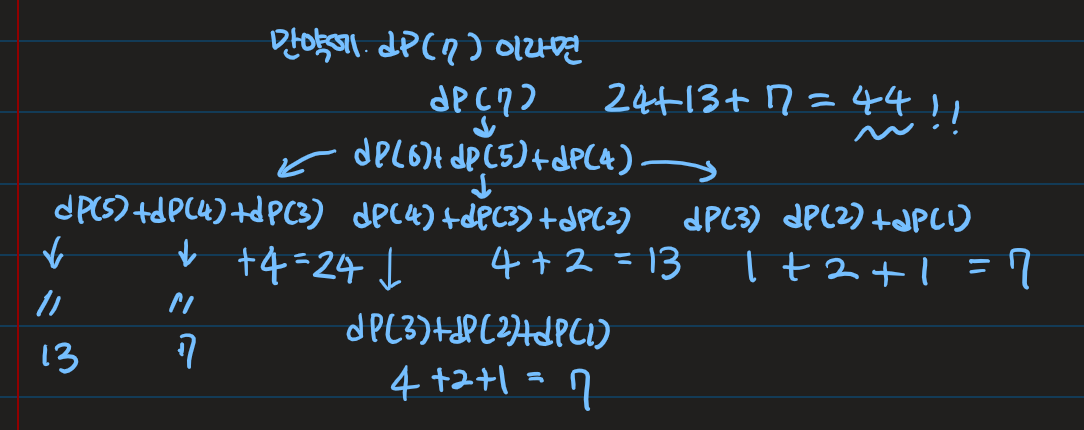 만약에. dp(7) 이라면
dp(7) 24+13+7 = 44 !!
dp(6)+dp(5)+dp(4)
dp(5)+dp(4)+dp(3) dp(4)+dp(3)+dp(2) dp(3) dp(2)+dp(1)
+4=24 4+2 = 13 1+2+1 = 7
" "
dp(3)+dp(2)+dp(1)
13 7
4+2+1 = 7